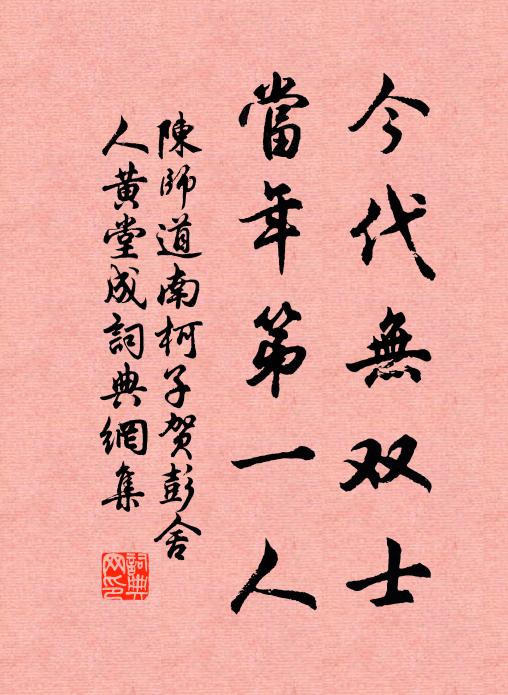 今代無双士
當年第一人
陳師道南柯子賀彭舍
人黄堂成詞典網集
詞典网印